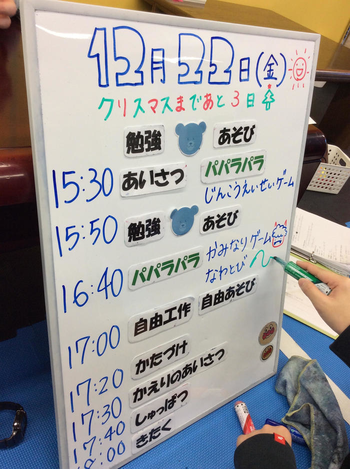 12月22日(金)
クリスマスまであと3日
勉強 あそび
15:30 あいさつ パパラパラ
じんこうえいせい ゲーム
15:50 勉強 あそび
16:40 パパラパラ かみなりゲーム
なわとび
17:00 自由工作 自由あそび
17:20 かたづけ
17:30 かえりのあいさつ
17:40 しゅっぱつ
18:00 きたく